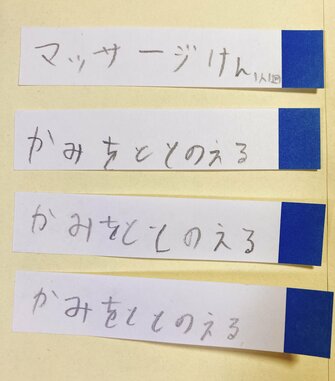 マッサージけん1人1回
かみをととのえる
かみをととのえる
かみをととのえる